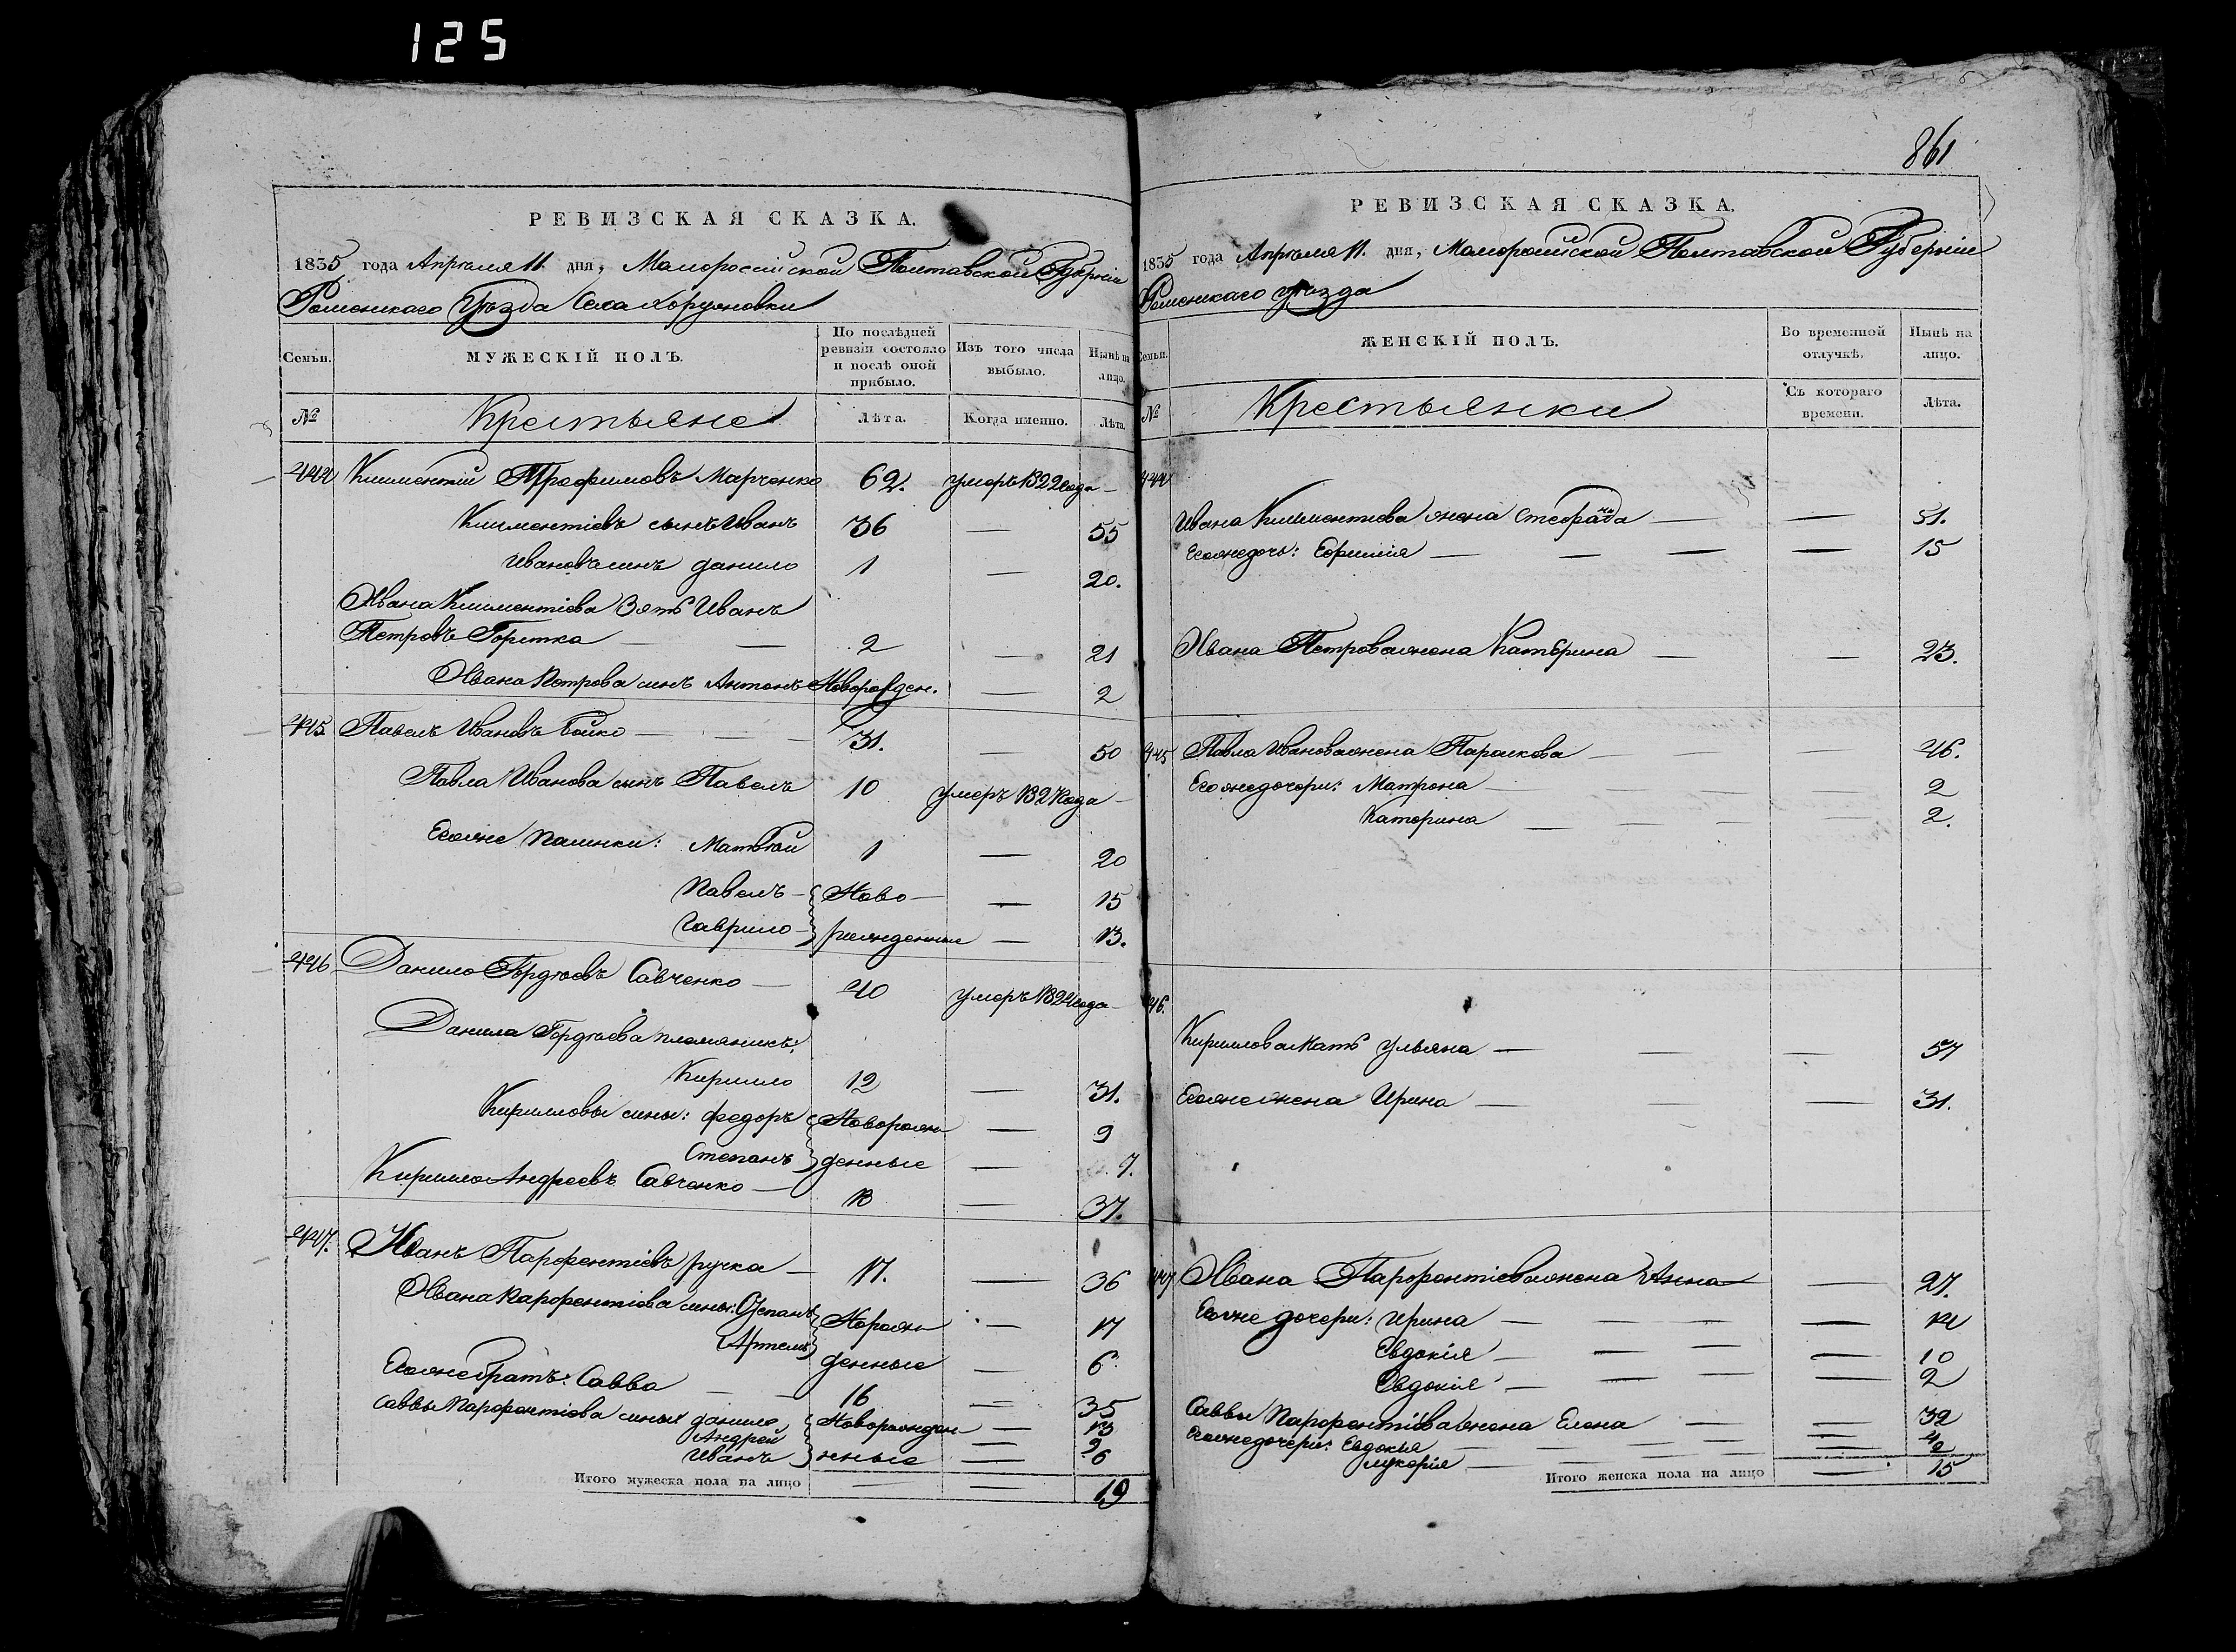 125
861
РЕВИЗСКАЯ СКАЗКА.
1835 года Апреля 11. дня, Малороссійской Полтавской Губерніи
Роменскаго Уѣзда Села Коруновки
Семьи.
МУЖЕСКІЙ ПОЛЪ.
По послѣдней ревизіи состояло и послѣ оной прибыло.
Изъ того числа выбыло.
Нынѣ на лицо.
№
Крестьяне
Лѣта.
Когда именно.
Лѣта.
444 Климентій Трофимовъ Марченко 62. умеръ 1822 года —
Климентіевъ сынъ Иванъ 36 — 55
Ивановъ синъ данило 1 — 20.
Ивана Климентіева Зять Иванъ
Петровъ Горетка — — 2 — 21
Ивана Петрова синъ Антонъ Новорожден. — 2
445 Павелъ Ивановъ Бойко — — — 31. — 50
Павла Иванова сынъ Павелъ 10 умеръ 1827 года —
Егоже Пасинки: Матвѣй 1 — 20
Павелъ — Ново — — 15
Гаврило — рожденные — 13.
446 Данило Гордѣевъ Савченко — 40 умеръ 1824 года —
Данила Гордѣева племяникъ:
Кирило 12 — 31.
Кириловы сины: Федоръ Новорож — 9
Степанъ денные — 7.
Кирило Андреевъ Савченко — 18 — 37.
447. Иванъ Парфентіевъ ручка — 17. — 36
Ивана Парфентіева сины: Степанъ Норож — 17
Артемъ денные — 6
Егоже братъ: Савва — — 16 — 35
Саввы Парфентіева сины данило Новорожден — 13
Андрей — 9
Иванъ нные — 6
Итого мужеска пола на лицо — — 19
РЕВИЗСКАЯ СКАЗКА.
1835 года Апреля 11. дня, Малоросійской Полтавской Губерніи
Роменскаго уѣзда
Семьи.
ЖЕНСКІЙ ПОЛЪ.
Во временной отлучкѣ.
Нынѣ на лицо.
№
Крестьянки
Съ котораго времени.
Лѣта.
444
Ивана Климентиева жена Стефанида — — 51.
Егоже дочь: Ефимия — — — — 15
Ивана Петрова жена Катерина — — 23.
445 Павла Иванова жена Параскова — — — 46.
Егоже дочери: Матрона — — — — 2
Каторина — — — — 2.
446.
Кирилова Мать Ульяна — — — 57
Егоже жена Ирина — — 31.
447 Ивана Парфентіева жена Анна — — 27.
Егоже дочери: Ирина — — — — 14
Евдокія — — — — 10
Евдокія — — — — 2
Саввы Парфентіева жена Елена — — — 32
Егоже дочери: Евдокія — — — — 4
лукерія — — — — 2
Итого женска пола на лицо — 15